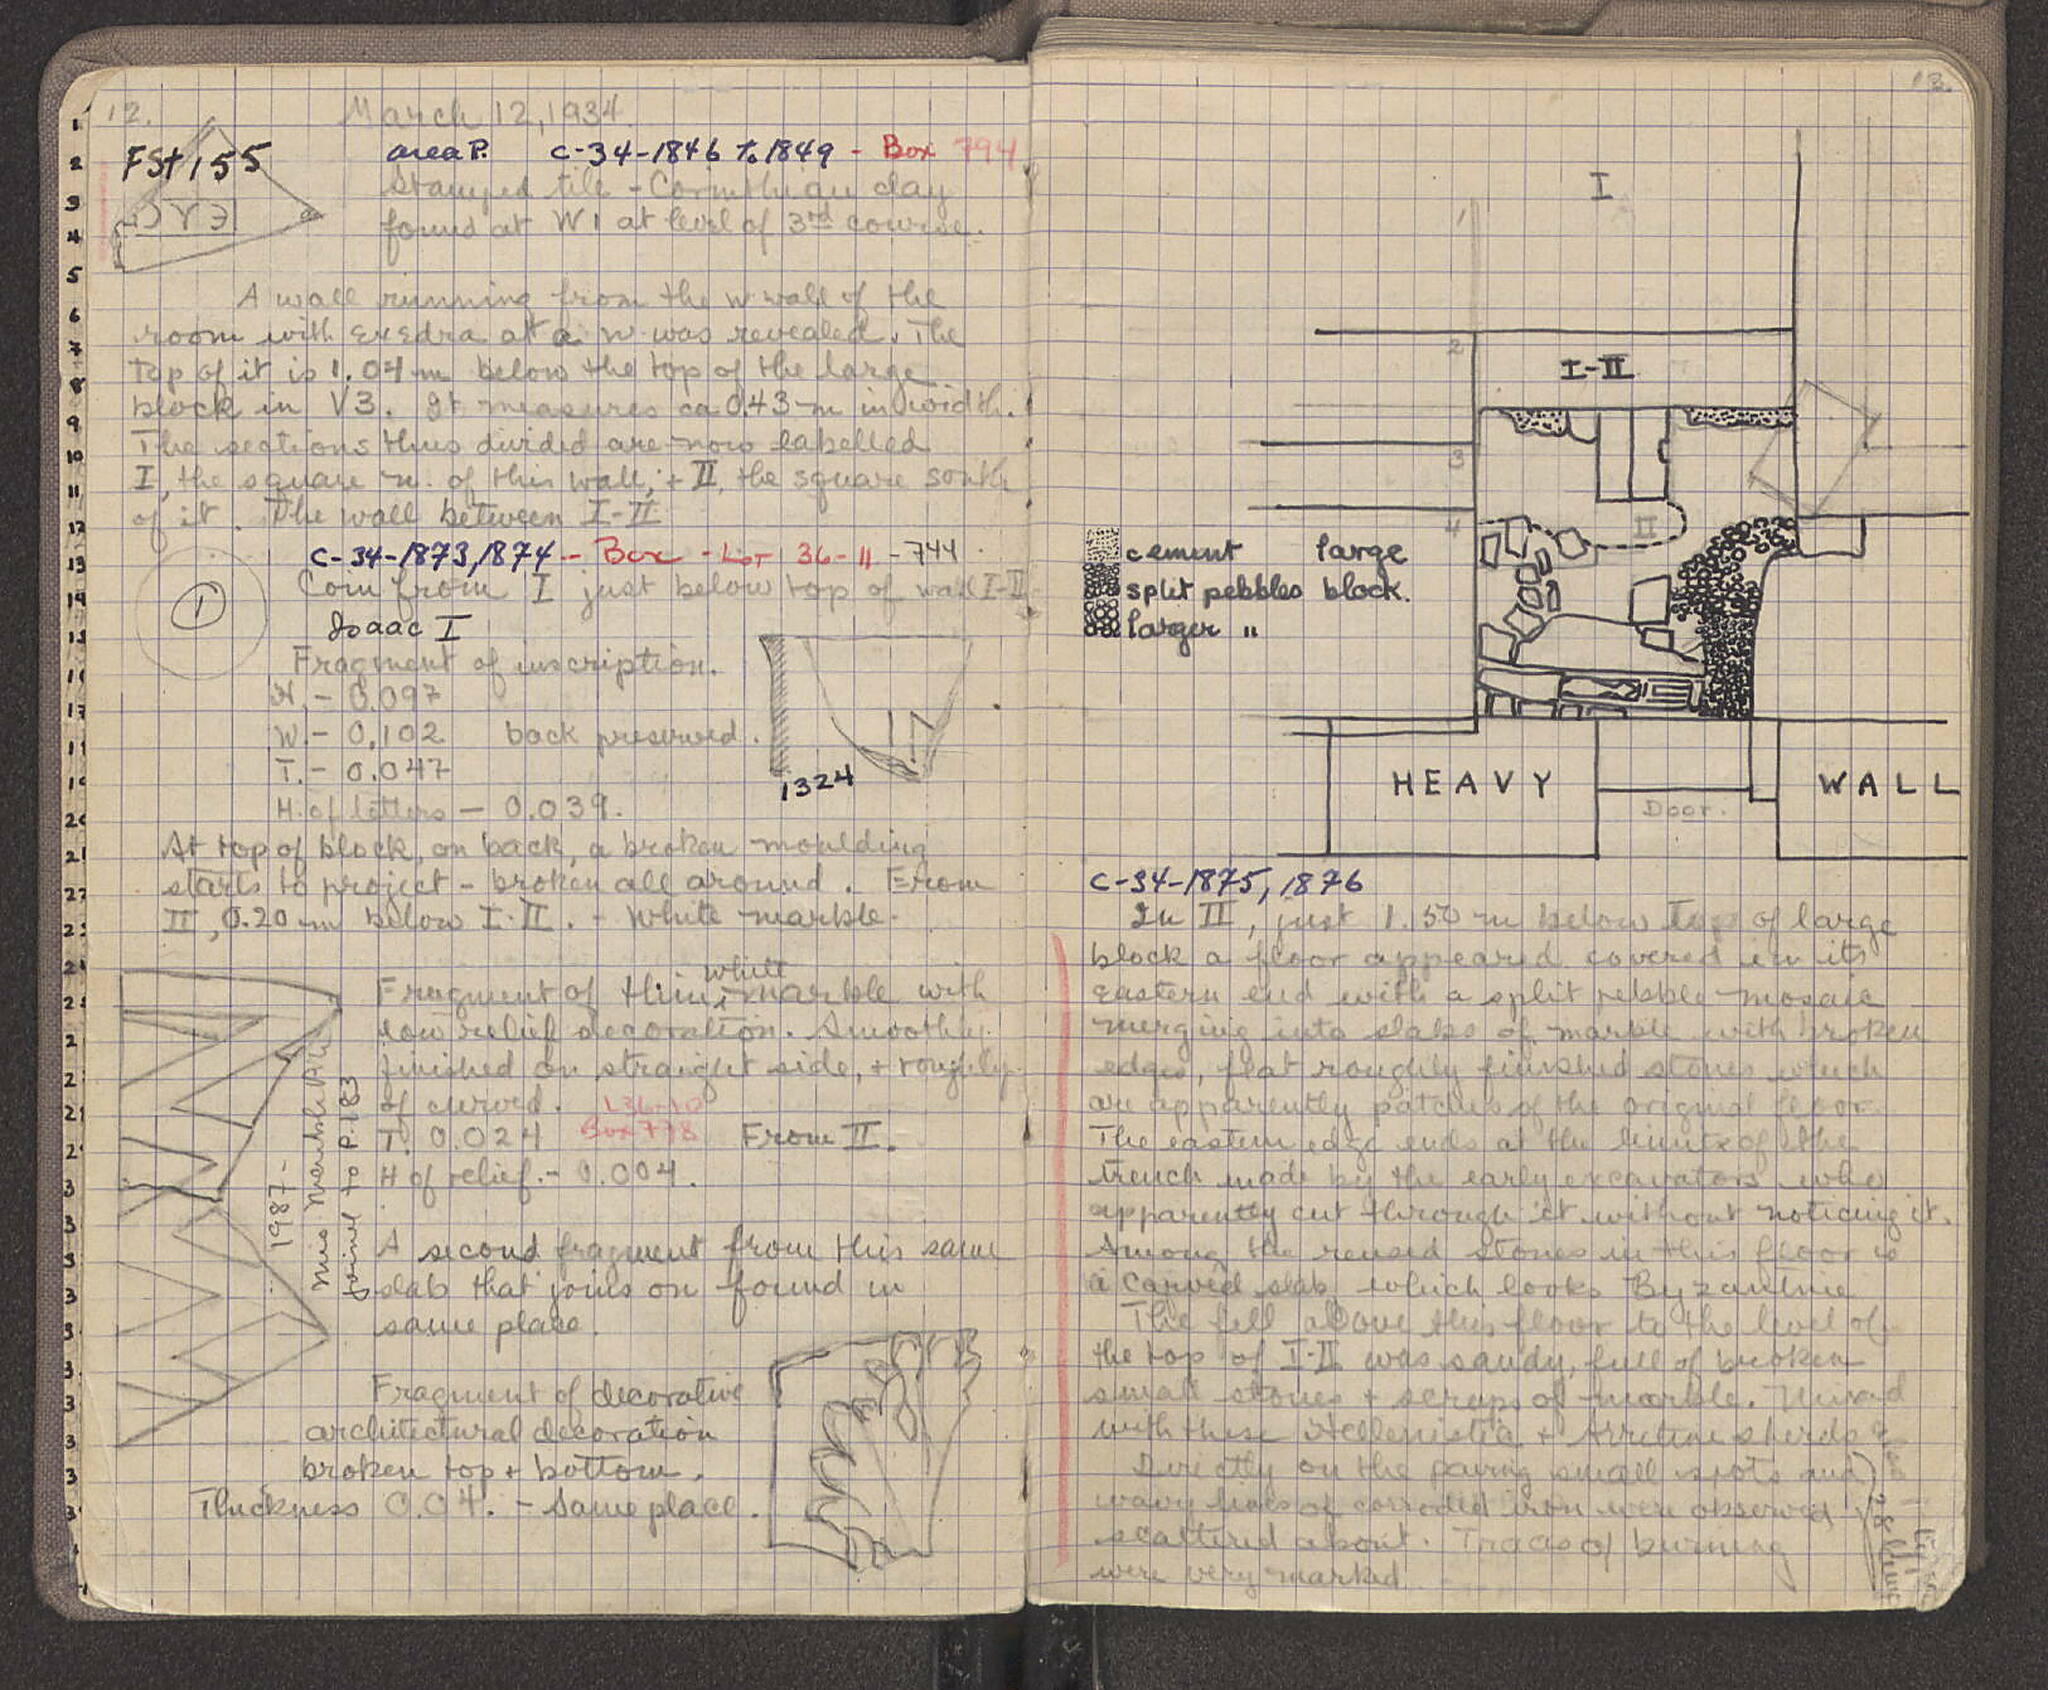 12.
March 12, 1934.
FSt 155
area P. C-34-1846 to 1849 - Box 794
Stamped tile - Corinthian clay
found at W 1 at level of 3rd course.
A wall running from the w wall of the
room with exedra at a w was revealed. The
top of it is 1.04 m below the top of the large
block in V3. It measures ca 0.43 m in width.
The sections thus divided are now labelled
I, the square n. of this wall, + II, the square south
of it. The wall between I-II
C-34-1873, 1874 - Box - Lot 36-11 - 744
1
Coin from I just below top of wall I-II
Isaac I
Fragment of inscription.
H. - 0.097
W. - 0.102 back preserved.
T. - 0.047
1324
H. of letters - 0.039.
At top of block, on back, a broken moulding
starts to project - broken all around. From
II, 0.20 m below I-II. - White marble.
Fragment of thin white marble with
low relief decoration. Smoothly
finished on straight side, + roughly
of curved.
T. 0.024 Box 778 From II.
H of relief. - 0.004.
1987-
joint to P. 183
A second fragment from this same
slab that joins on found in
same place.
Fragment of decorative
architectural decoration
broken top + bottom.
Thickness 0.04. - Same place.
13.
I
1
2
I-II
3
4
II
cement large
split pebbles block.
larger "
HEAVY WALL
Door.
C-34-1875, 1876
In II, just 1.50 m below top of large
block a floor appeared covered in its
eastern end with a split pebble mosaic
merging into slabs of marble with broken
edges, flat roughly finished stones which
are apparently patches of the original floor.
The eastern edge ends at the limits of the
trench made by the early excavators who
apparently cut through it without noticing it.
Among the reused stones in this floor is
a carved slab which looks Byzantine
The fill above this floor to the level of
the top of I-II was sandy, full of broken
small stones + scraps of marble. Mixed
with these Hellenistic + Arretine sherds
Directly on the paving small spots and
wavy lines of corroded iron were observed
scattered about. Traces of burning
were very marked